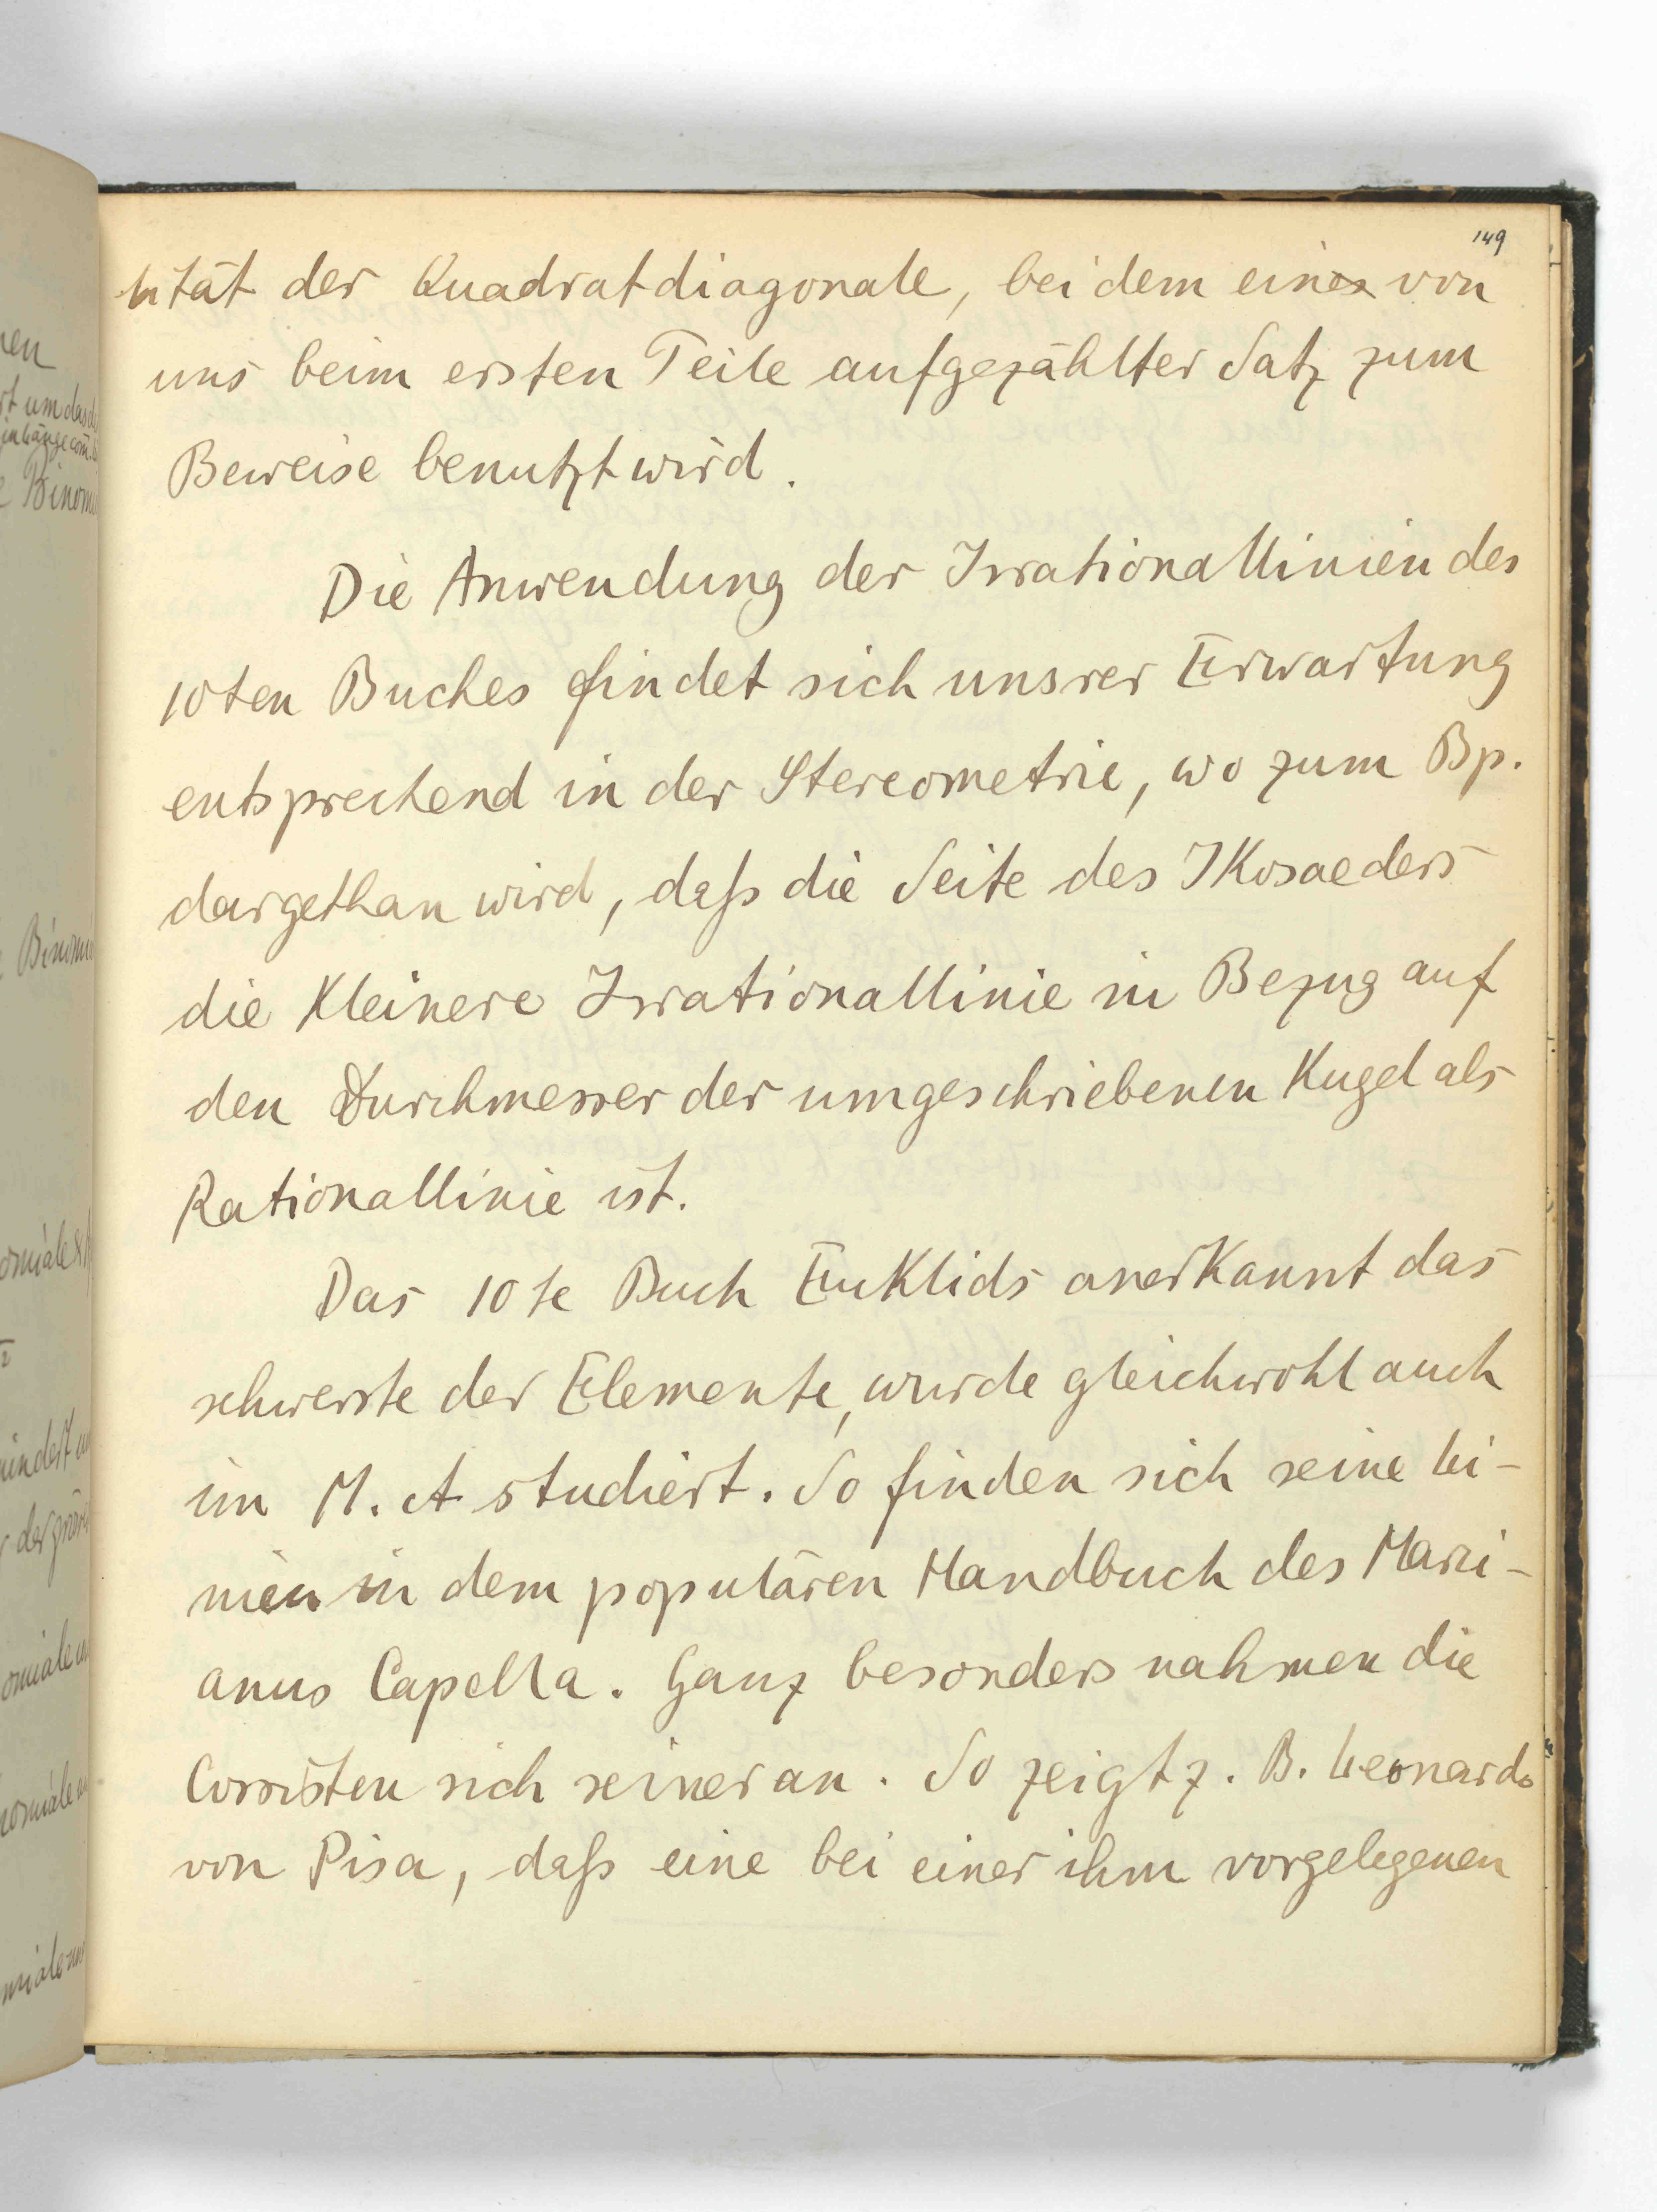 149
lität der Quadratdiagonale, bei dem eines von
uns beim ersten Teile aufgezählter Satz zum
Beweise benutzt wird.
Die Anwendung der Irrationallinien des
10ten Buches findet sich unsrer Erwartung
entsprechend in der Stereometrie, wo zum Bp.
dargethan wird, daſs die Seite des Ikosaeders
die kleinere Irrationallinie in Bezug auf
den Durchmesser der umgeschriebenen Kugel als
Rationallinie ist.
Das 10te Buch Euklids anerkannt das
schwerste der Elemente, wurde gleichwohl auch
im M. A studiert. So finden sich seine Li-
nien in dem populären Handbuch des Marci-
anus Capella. Ganz besonders nahmen die
Cossisten sich seiner an. So zeigt z. B. Leonardo
von Pisa, daſs eine bei einer ihm vorgelegenen
nen
Binom